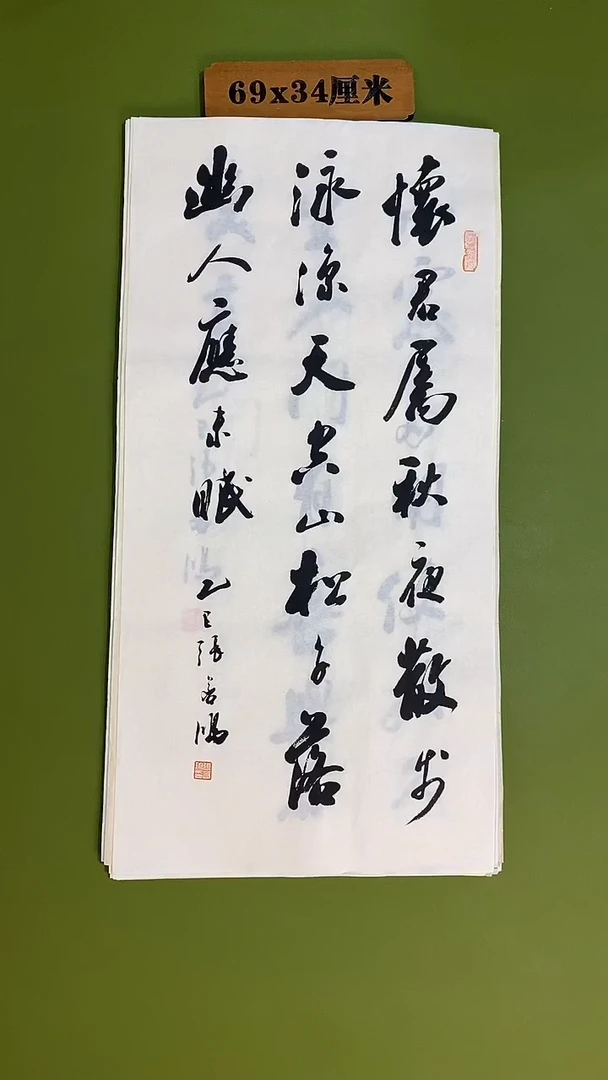 69x34厘米
懷君属秋夜散步
詠涼天空山松子落
幽人應未眠
乙巳張善鴻